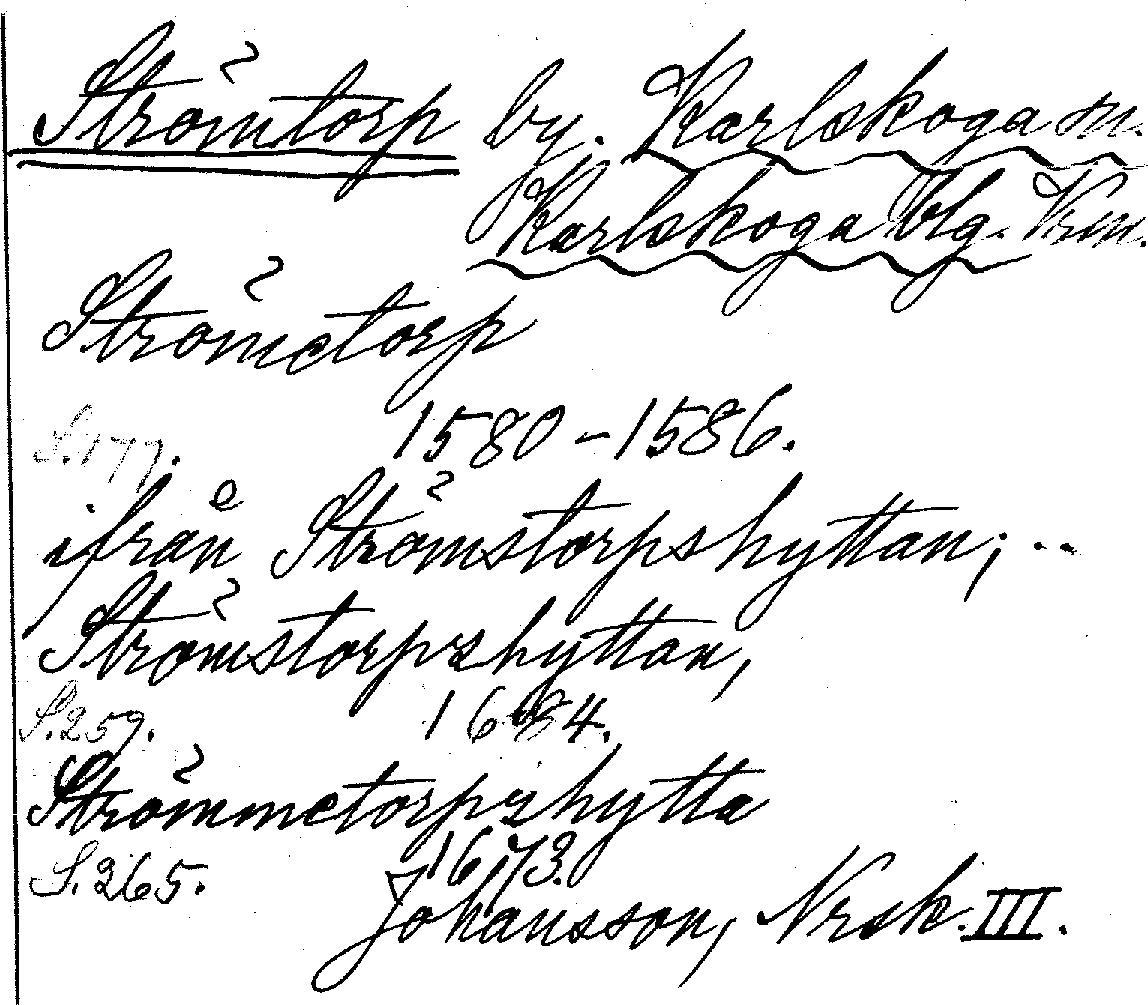 Strömtorp by. Karlskoga sn.
Karlskoga blg. Vrm.
Strömetorp
S.177. 1580–1586.
ifrån Strömstorpshyttan; ..
Strömstorpshyttan,
S.259. 1684.
Strömmetorpshytta
S.265. 1673.
Johansson, Nrsk. III.